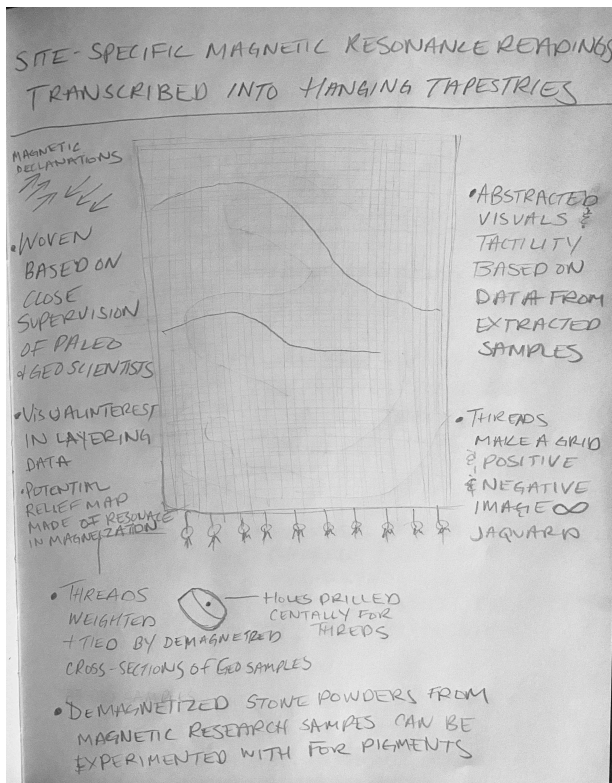 SITE-SPECIFIC MAGNETIC RESONANCE READINGS
TRANSCRIBED INTO HANGING TAPESTRIES
MAGNETIC
DECLANATIONS
• WOVEN
BASED ON
CLOSE
SUPERVISION
OF PALEO
& GEO SCIENTISTS
• VISUAL INTEREST
IN LAYERING
DATA
• POTENTIAL
RELIEF MAP
MADE OF RESONATE
IN MAGNETIZATION
• ABSTRACTED
VISUALS &
TACTILITY
BASED ON
DATA FROM
EXTRACTED
SAMPLES
• THREADS
MAKE A GRID
& POSITIVE
& NEGATIVE
IMAGE ∞
JAQUARD
• THREADS
WEIGHTED
+ TIED BY DEMAGNETIZED
CROSS-SECTIONS OF GEO SAMPLES
HOLES DRILLED
CENTALLY FOR
THREDS
• DEMAGNETIZED STONE POWDERS FROM
MAGNETIC RESEARCH SAMPES CAN BE
EXPERIMENTED WITH FOR PIGMENTS